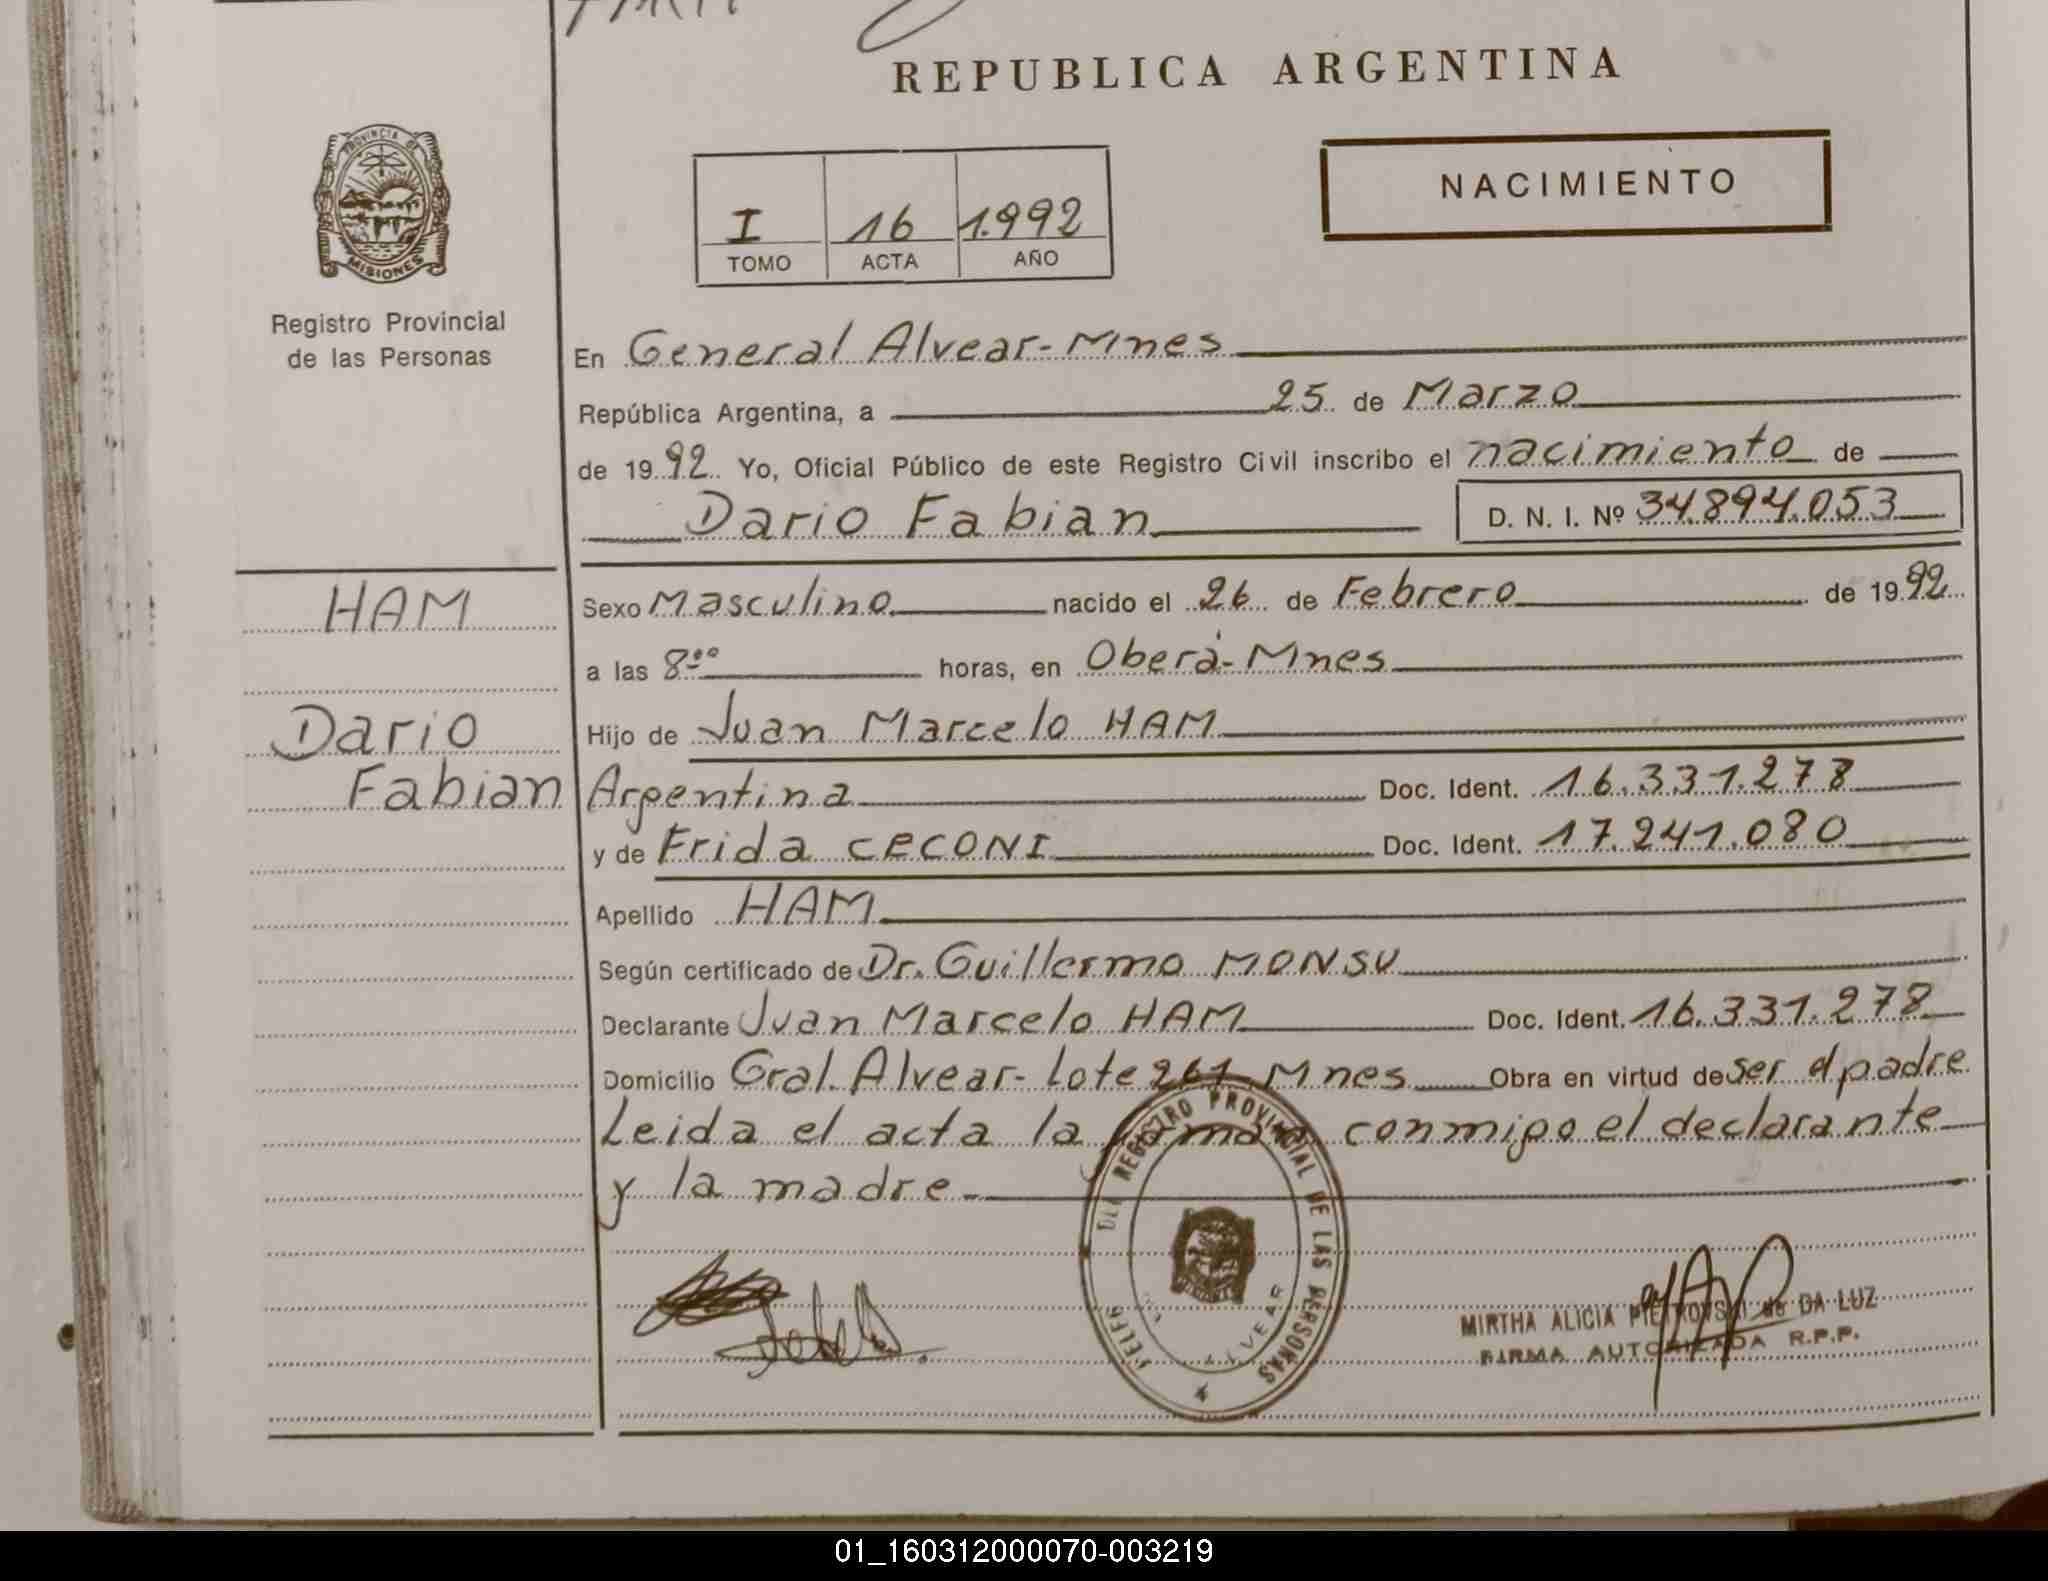 REPUBLICA ARGENTINA
PROVINCIA DE
MISIONES
Registro Provincial
de las Personas
I 16 1.992
TOMO ACTA AÑO
NACIMIENTO
En General Alvear-Mnes
República Argentina, a 25 de Marzo
de 1992 Yo, Oficial Público de este Registro Civil inscribo el nacimiento de
Dario Fabian D. N. I. Nº 34.894.053
HAM
Dario
Fabian
Sexo Masculino nacido el 26 de Febrero de 1992
a las 8ºº horas, en Oberá-Mnes
Hijo de Juan Marcelo HAM
Argentina Doc. Ident. 16.331.278
y de Frida CECONI Doc. Ident. 17.241.080
Apellido HAM
Según certificado de Dr. Guillermo MONSU
Declarante Juan Marcelo HAM Doc. Ident. 16.331.278
Domicilio Gral. Alvear-Lote 261 Mnes Obra en virtud de ser el padre
Leida el acta la firma conmigo el declarante
y la madre
REGISTRO PROVINCIAL DE LAS PERSONAS
ALVEAR
MIRTHA ALICIA PIETROVSKI de DA LUZ
FIRMA AUTORIZADA R.P.P.
01_160312000070-003219